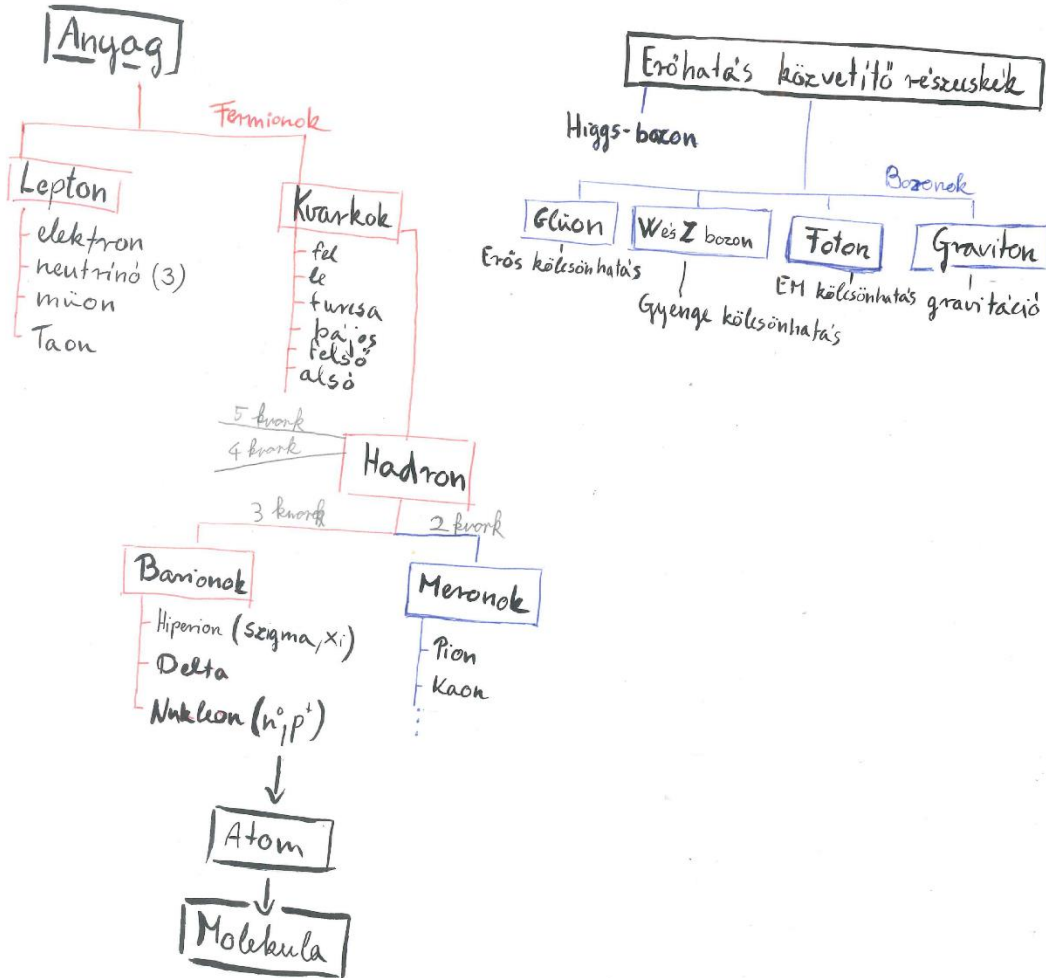 Anyag
Fermionok
Lepton
elektron
neutrínó (3)
müon
Taon
Kvarkok
fel
le
furcsa
bájos
felső
alsó
5 kvark
4 kvark
Hadron
3 kvark
2 kvark
Barionok
Hiperion (Szigma, Xi)
Delta
Nukleon (n°, p⁺)
Mezonok
Pion
Kaon
Atom
Molekula
Erőhatás közvetítő részecskék
Higgs-bozon
Bozonok
Glüon
Erős kölcsönhatás
W és Z bozon
Gyenge kölcsönhatás
Foton
EM kölcsönhatás
Graviton
gravitáció